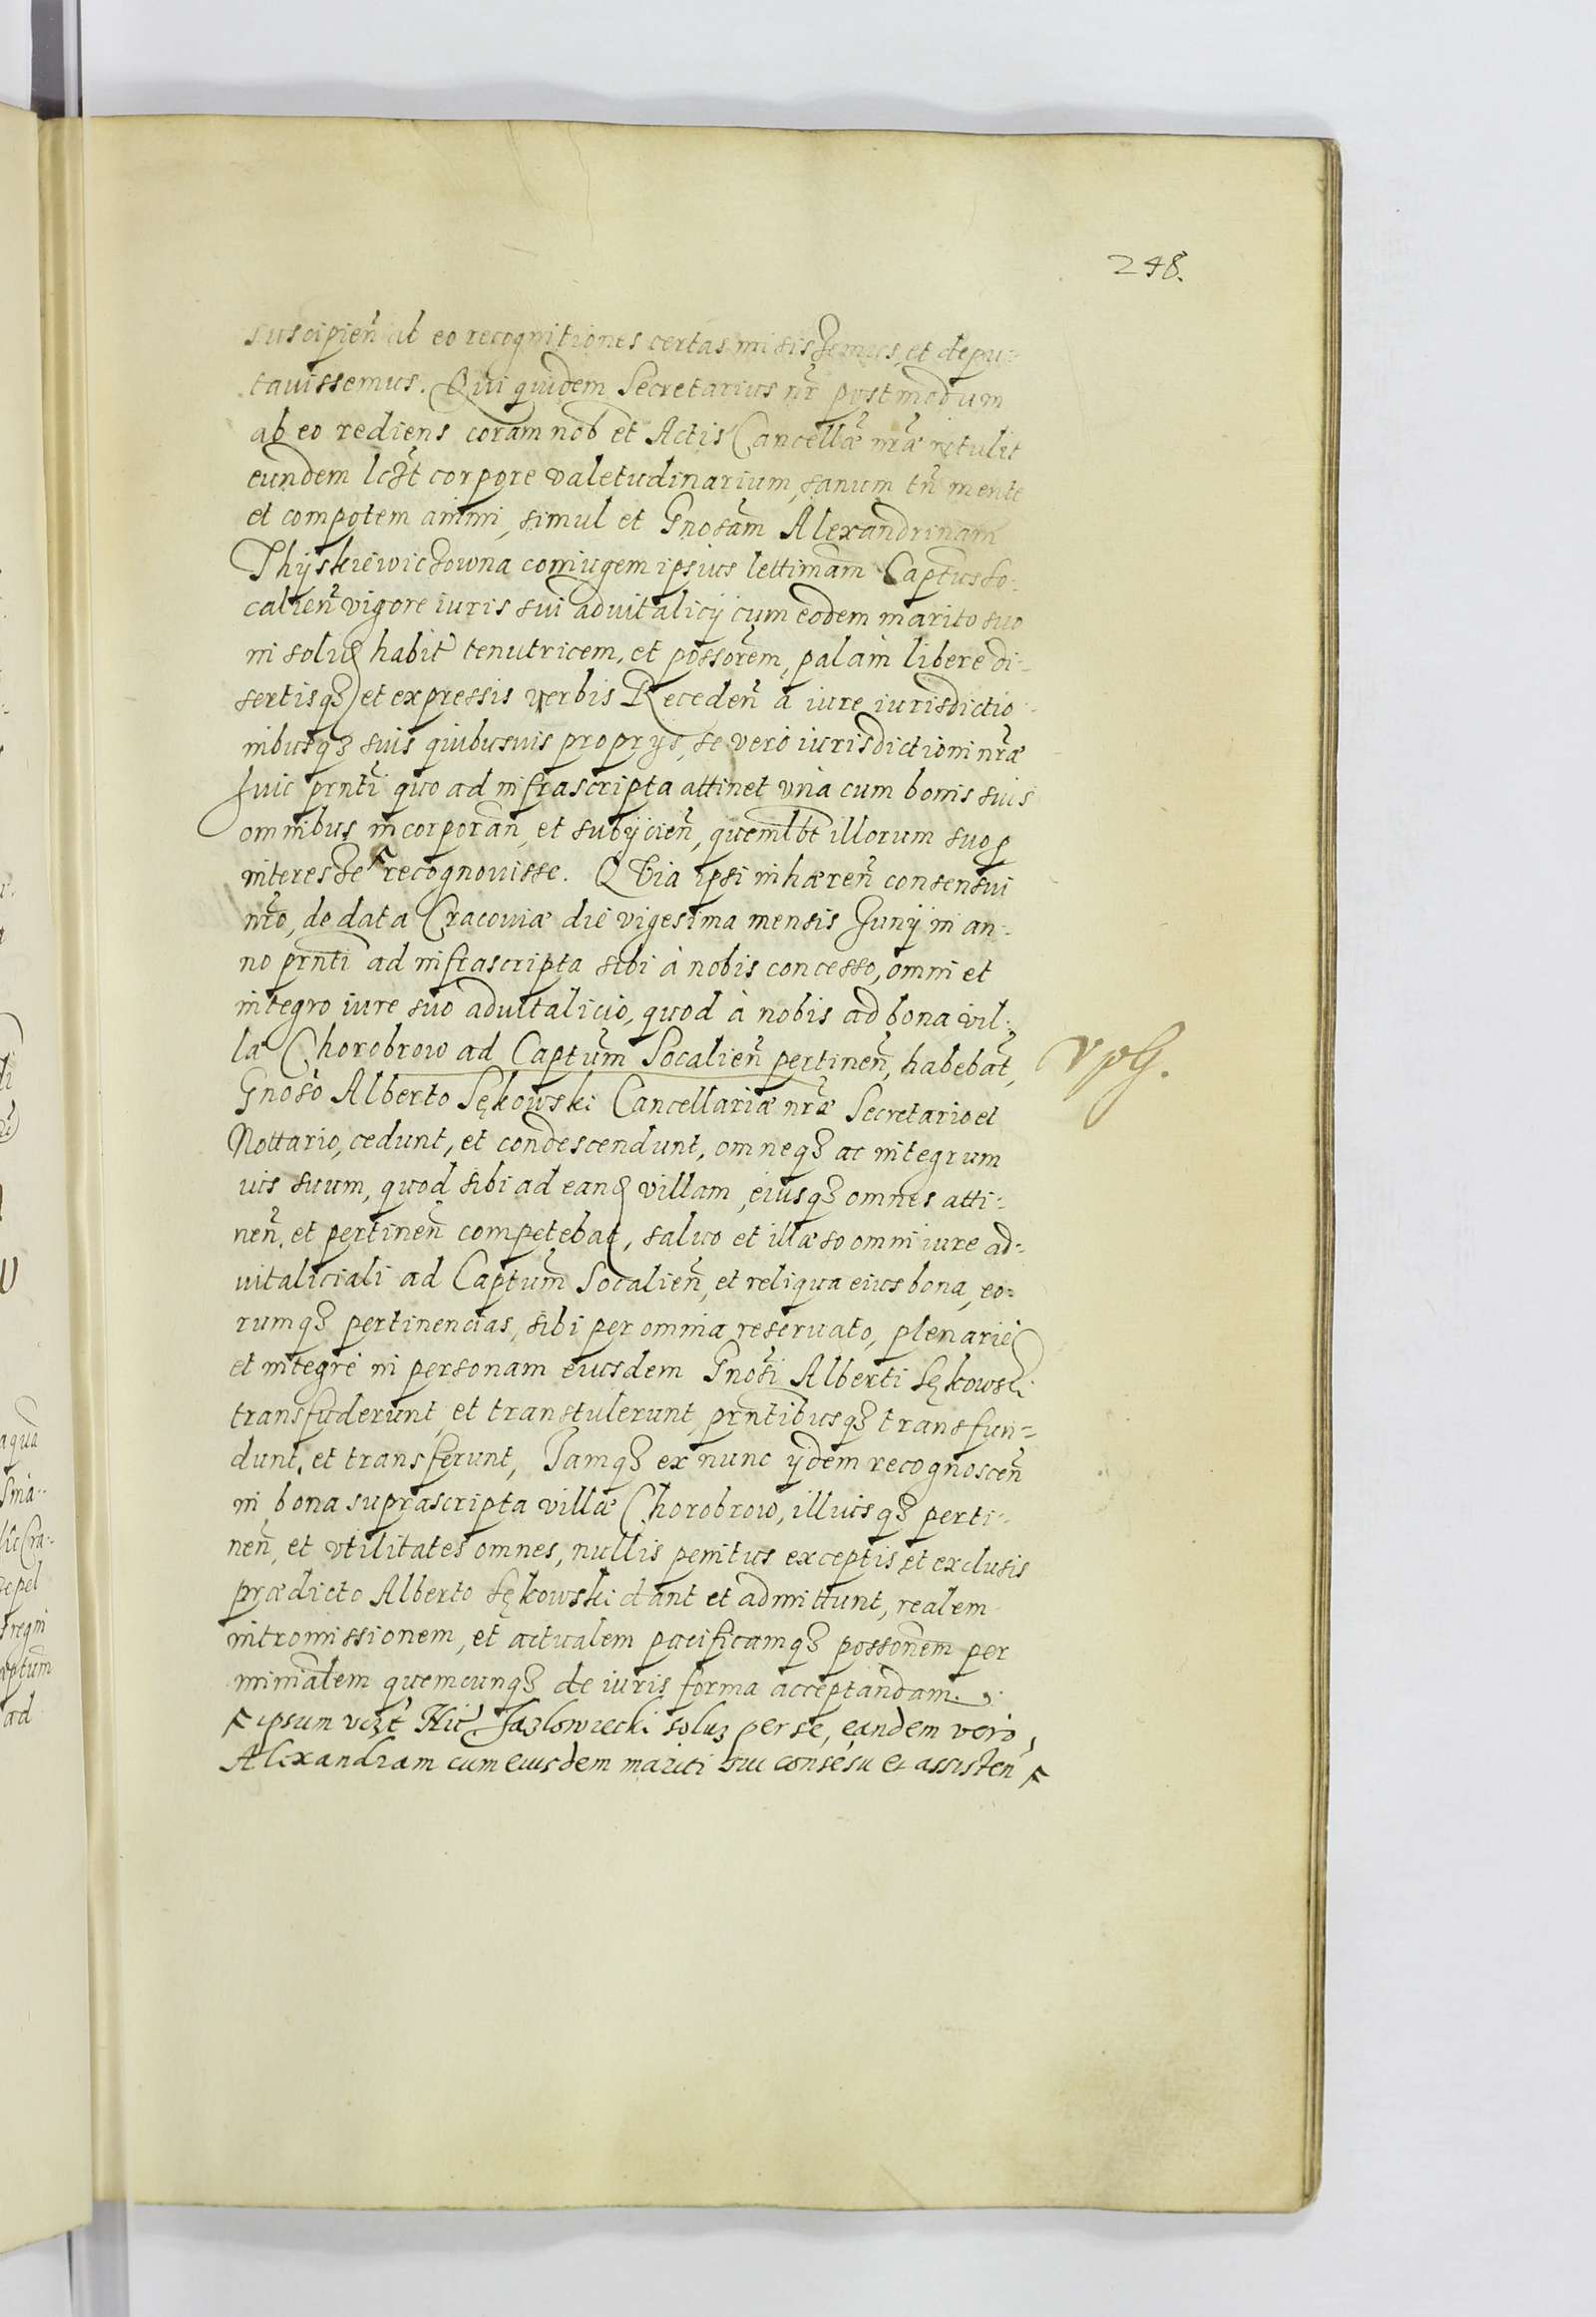 248.
suscipien̄ ab eo recognitiones certas misissemus, et depu:
tauissemus. Qui quidem Secretarius nr̄ postmodum
ab eo rediens coram nob et Actis Cancellæ nræ retulit
eundem licet corpore valetudinarium, sanum tn̄ mente
et compotem animi, simul et Gnosam Alexandrinam
Thyskiewiczowna coniugem ipsius lettimam Captus So:
calien̄ vigore iuris sui aduitalicij cum eodem marito suo
in solid habit tenutricem, et possorem, palàm libere di:
sertisq3 et expressis verbis Receden̄ à iure iurisdictio:
nibusq3 suis quibusuis proprijs, se verò iurisdictioni nræ
huic prnti quo ad infrascripta attinet vnà cum bonis suis
omnibus incorporan̄, et subijcien̄, quemlbt illorum suo p
interesse recognouisse. Quia ipsi inhæren̄ consensui
nro, de data Cracouiæ die vigesima mensis Junij in an:
no prnti ad infrascripta sibi à nobis concesso, omni et
integro iure suo aduitalicio, quod à nobis ad bona vil:
la Chorobrow ad Captum Socalien̄ pertinen̄, habebat,
vpG.
Gnoso Alberto Sękowski Cancellariæ nræ Secretario et
Nottario, cedunt, et condescendunt, omneq3 ac integrum
ius suum, quod sibi ad eand villam, eiusq3 omnes atti:
nen̄. et pertinen̄ competebat, saluo et illæso omni iure ad:
uitaliciali ad Captum Socalien̄, et reliqua eius bona, eo:
rumq3 pertinencias, sibi per omnia reseruato, plenariè
et integrè in personam eiusdem Gnosi Alberti Sękowski
transfuderunt, et transtulerunt, prntibusq3 transfun:
dunt, et transferunt, Jamq3 ex nunc ijdem recognoscen̄
in bona suprascripta villæ Chorobrow, illiusq3 perti:
nen̄, et vtilitates omnes, nullis penitus exceptis et exclusis
prædicto Alberto Sękowski dant et admittunt, realem
intromissionem, et actualem pacificamq3 possonem per
minialem quemcunq3 de iuris forma acceptandam.
ipsum vizt Hic Jazlowiecki solus per se, eandem verò
Alexandram cum eiusdem mariti sui consesu et assisten̄